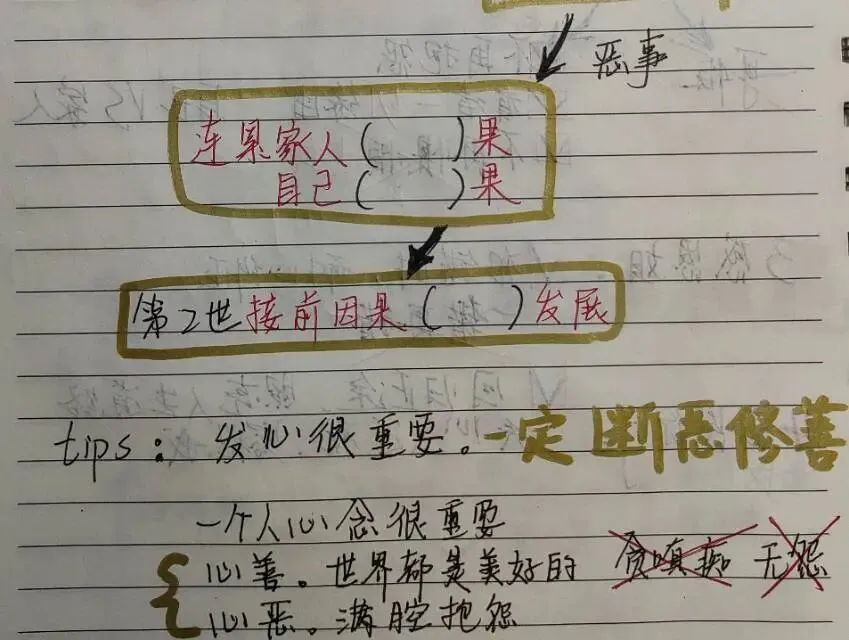 恶事
连累家人( )果
自己( )果
第2世接前因果( )发展
tips: 发心很重要。一定断恶修善
一个人心念很重要
心善。世界都是美好的 贪嗔痴 无怨
心恶。满腔抱怨